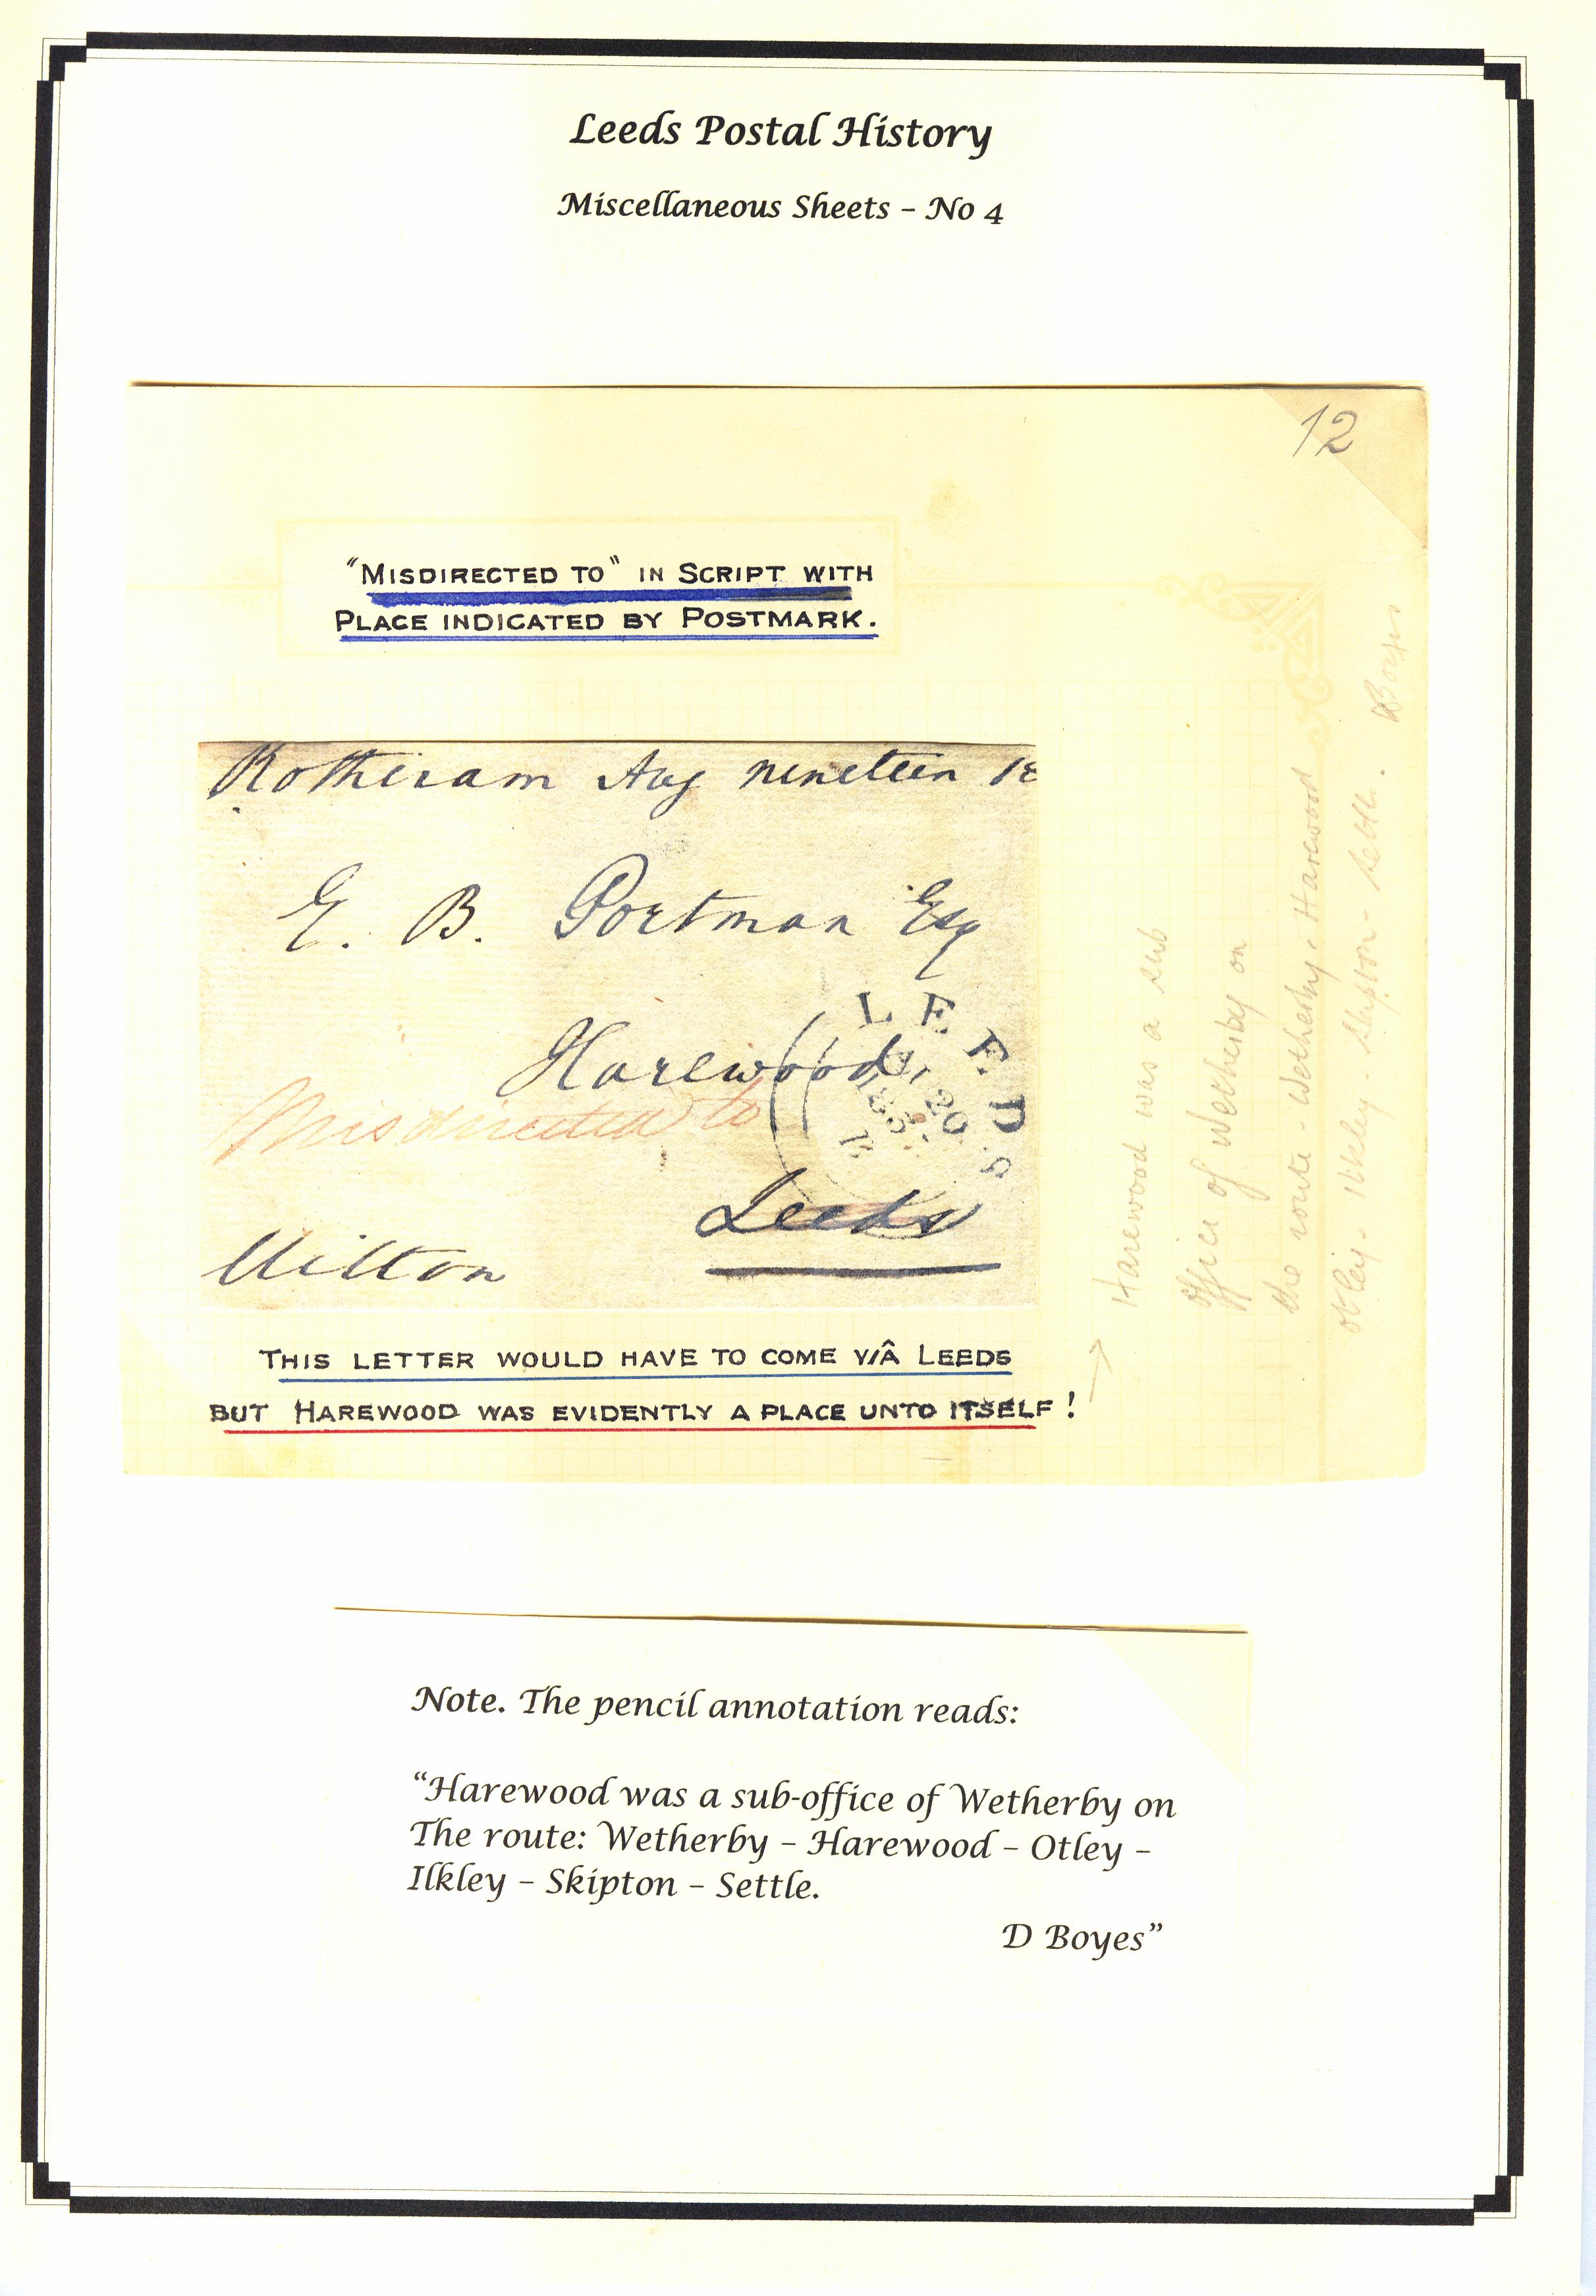 Leeds Postal History
Miscellaneous Sheets – No 4
12
"MISDIRECTED TO" IN SCRIPT WITH
PLACE INDICATED BY POSTMARK.
Rotheram Aug nineteen 18
E. B. Portman Esq
LEEDS
Harewood
20
Misdirected to
Leeds
Milton
THIS LETTER WOULD HAVE TO COME VIÂ LEEDS
BUT HAREWOOD WAS EVIDENTLY A PLACE UNTO ITSELF!
Harewood was a sub
office of Wetherby on
the route - Wetherby - Harewood
Otley - Ilkley - Skipton - Settle. Boyes
Note. The pencil annotation reads:
“Harewood was a sub-office of Wetherby on
The route: Wetherby – Harewood – Otley –
Ilkley – Skipton – Settle.
D Boyes”